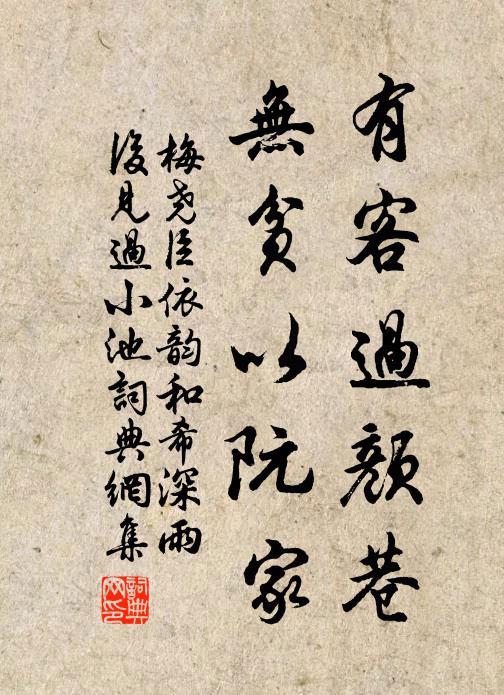 有客過顏巷
無貧以阮家
梅尧臣依韵和希深雨
後見過小池詞典網集
詞典
网印